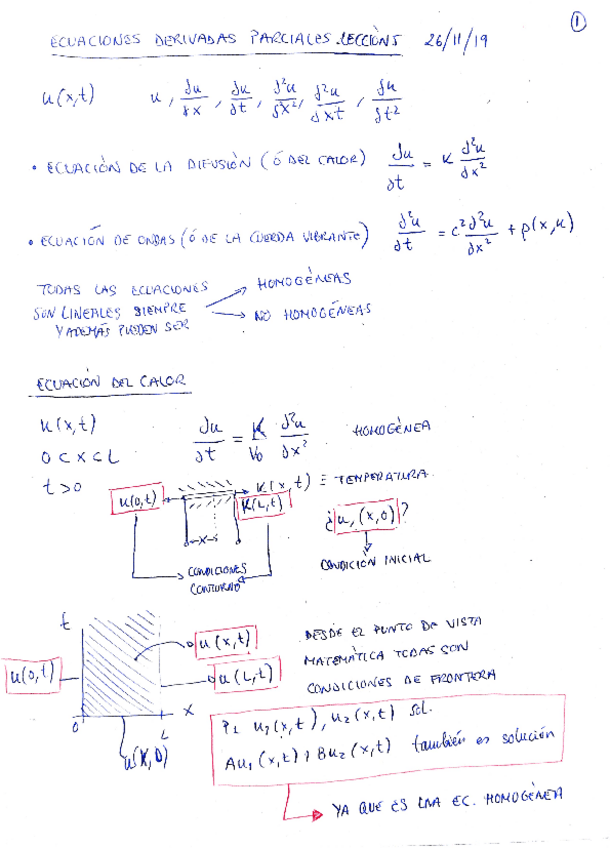 ①
ECUACIONES DERIVADAS PARCIALES. LECCIÓN 5 26/11/19
u(x,t) u, ∂u/∂x, ∂u/∂t, ∂²u/∂x², ∂²u/∂xt, ∂u/∂t2
• ECUACIÓN DE LA DIFUSIÓN (Ó DEL CALOR) ∂u/∂t = K ∂²u/∂x²
• ECUACIÓN DE ONDAS (Ó DE LA CUERDA VIBRANTE) ∂²u/∂t = c² ∂²u/∂x² + p(x,u)
TODAS LAS ECUACIONES → HOMOGÉNEAS
SON LINEALES SIEMPRE → NO HOMOGÉNEAS
Y ADEMÁS PUEDEN SER
ECUACIÓN DEL CALOR
u(x,t) ∂u/∂t = K/V0 ∂²u/∂x² HOMOGÉNEA
0<x<L
t>0
u(0,t) K(x,t) ≡ TEMPERATURA
K(L,t) ¿u,(x,0)?
x
CONDICIONES
CONTORNO
CONDICIÓN INICIAL
t u(x,t)
u(0,t) u(L,t)
0 L x
u(X,0)
DESDE EL PUNTO DE VISTA
MATEMÁTICA TODAS SON
CONDICIONES DE FRONTERA
u1(x,t), u2(x,t) sol.
Au1(x,t), Bu2(x,t) también es solución
→ YA QUE ES UNA EC. HOMOGÉNEA